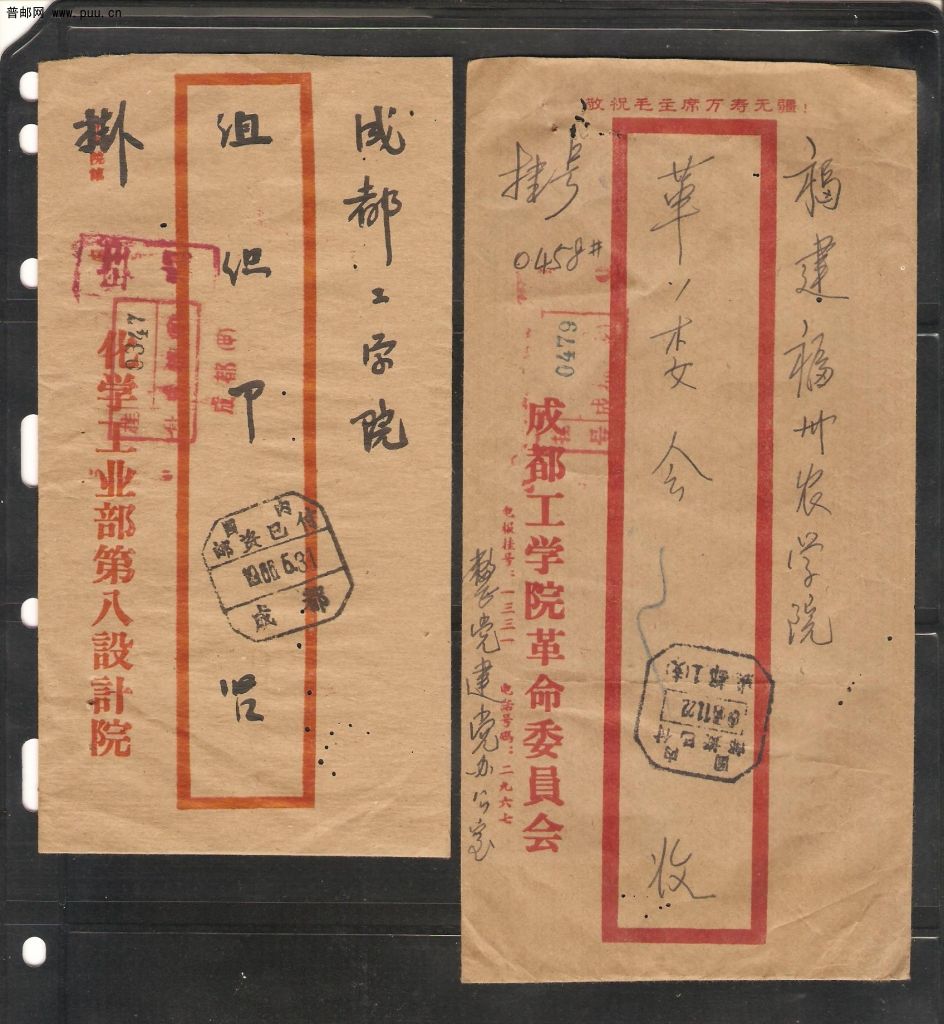 普邮网 www.puu.cn
成都工学院
组织部
掛
0347
成都
化学工业部第八設計院
国内
邮资已付
成都
敬祝毛主席万寿无疆!
福建福州农学院
革委会
收
挂号
0458#
0479
成都工学院革命委員会
电报挂号:一三三一 电话号碼:二九六七
整党建党办公室
國内
邮资已付
成都